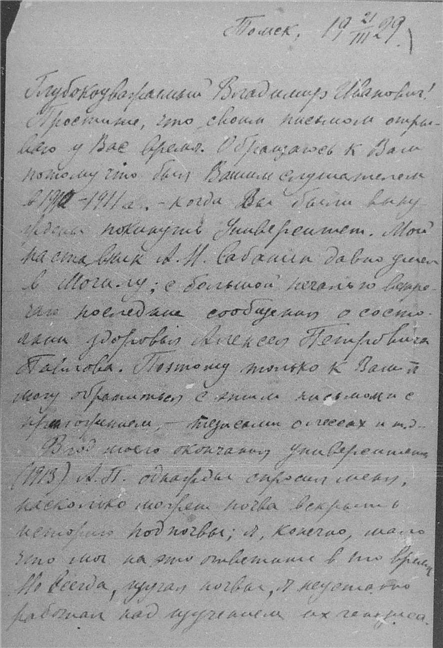 Томск, 19 21/III 29.
Глубокоуважаемый Владимир Иванович!
Простите, что своим письмом отры-
ваю у Вас время. Обращаюсь к Вам
потому что был Вашим слушателем
в 1910-1911 г. - когда Вы были выну-
ждены покинуть Университет. Мой
наставник А.Н. Сабанин давно ушел
в могилу; с большой печалью встре-
чаю последние сообщения о состо-
янии здоровья Алексея Петровича
Павлова. Поэтому только к Вам я
могу обратиться с этим письмом и с
приложением, - тезисами о лессах и т.д.
В год моего окончания университета
(1913) А.П. однажды спросил меня,
насколько может почва вскрыть
историю подпочвы; я, конечно, мало
что мог на это ответить в то время.
Но всегда, изучая почвы, я неустанно
работал над изучением их генезиса.